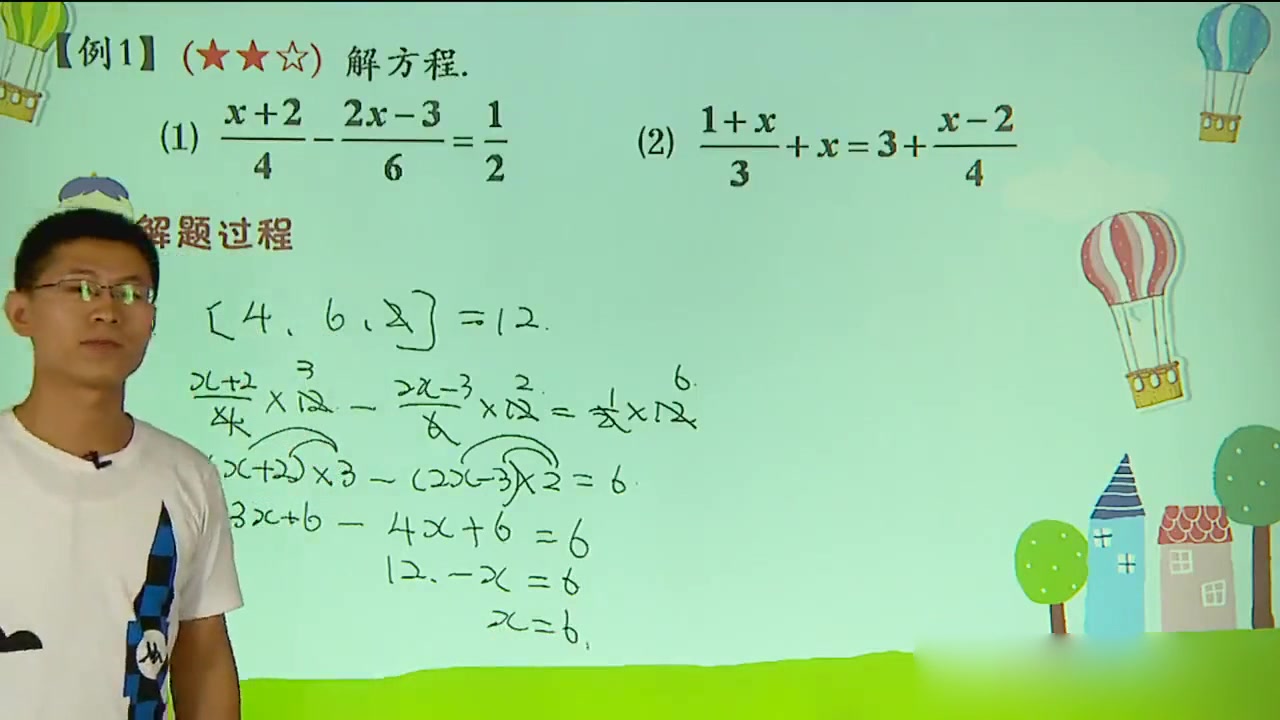 【例1】(★★☆) 解方程.
(1) \frac{x+2}{4} - \frac{2x-3}{6} = \frac{1}{2}
(2) \frac{1+x}{3} + x = 3 + \frac{x-2}{4}
解题过程
[4、6、2] = 12.
\frac{x+2}{4} × 12 3 - \frac{2x-3}{6} × 12 2 = \frac{1}{2} × 12 6
(x+2) × 3 - (2x-3) × 2 = 6
3x+6 - 4x+6 = 6
12 - x = 6
x = 6.